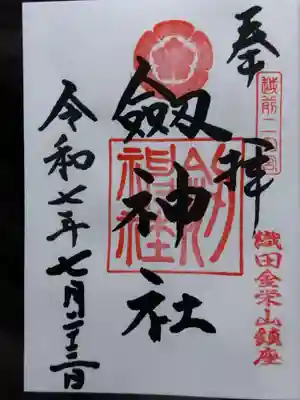 奉拝
越前二宮
織田金栄山鎮座
劔神社
劔神社
令和七年七月二十三日